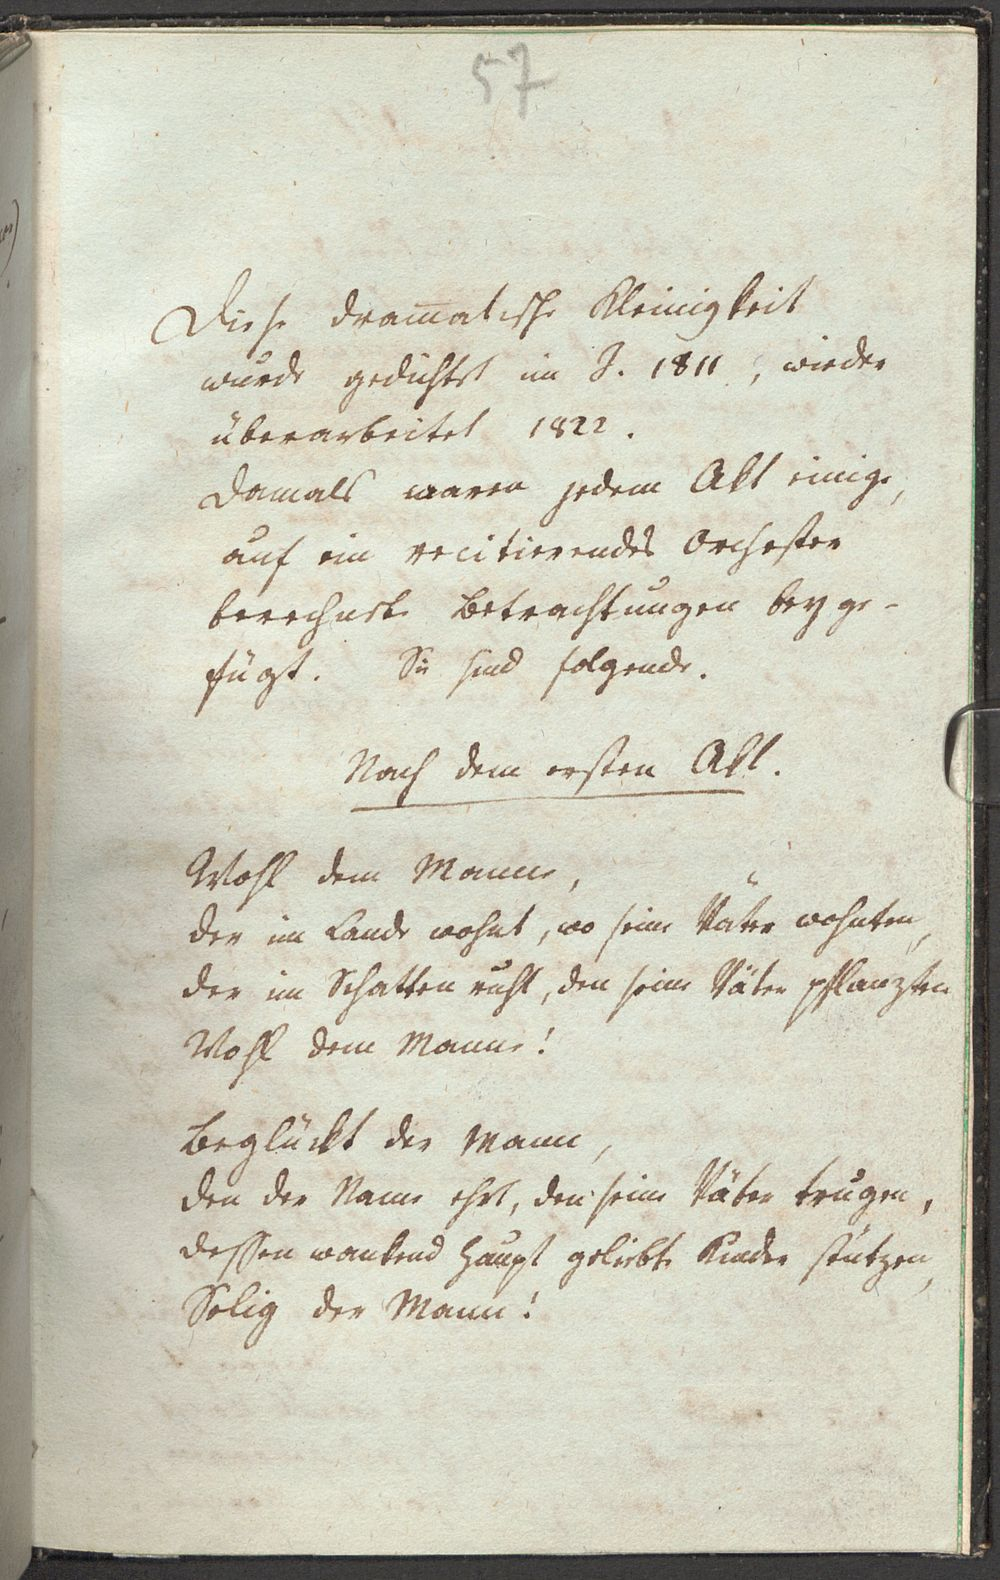 57
Diese dram̅atische Kleinigkeit
wurde gedichtet im J. 1811, wieder
überarbeitet 1822.
Damals waren jedem Akt einige,
auf ein recitierendes Orchester
berechnete Betrachtungen beyge-
fügt. Sie sind folgende.
Nach dem ersten Akt.
Wohl dem Manne,
der im Lande wohnt, wo seine Väter wohnten,
der im Schatten ruht, den seine Väter pflanzten
Wohl dem Manne!
Beglückt der Mann,
den der Name ehrt, den seine Väter trugen,
dessen wankend Haupt geliebte Kinder stützen,
Selig der Mann!